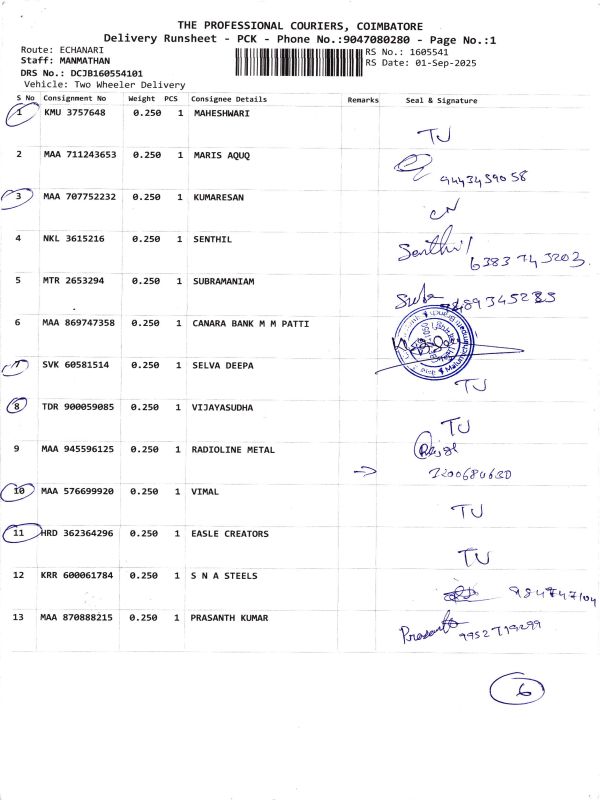 THE PROFESSIONAL COURIERS, COIMBATORE
Delivery Runsheet - PCK - Phone No.:9047080280 - Page No.:1
Route: ECHANARI
Staff: MANMATHAN
DRS No.: DCJB160554101
Vehicle: Two Wheeler Delivery
RS No.: 1605541
RS Date: 01-Sep-2025
S No Consignment No Weight PCS Consignee Details Remarks Seal & Signature
1 KMU 3757648 0.250 1 MAHESHWARI
TU
2 MAA 711243653 0.250 1 MARIS AQUQ
9443459058
3 MAA 707752232 0.250 1 KUMARESAN
CN
4 NKL 3615216 0.250 1 SENTHIL
Senthil
6383743203.
5 MTR 2653294 0.250 1 SUBRAMANIAM
Suba
6 MAA 869747358 0.250 1 CANARA BANK M M PATTI
7 SVK 60581514 0.250 1 SELVA DEEPA
TU
8 TDR 900059085 0.250 1 VIJAYASUDHA
TU
9 MAA 945596125 0.250 1 RADIOLINE METAL
10 MAA 576699920 0.250 1 VIMAL
TU
11 HRD 362364296 0.250 1 EASLE CREATORS
TU
12 KRR 600061784 0.250 1 S N A STEELS
13 MAA 870888215 0.250 1 PRASANTH KUMAR
Prasanth
9952719299
6